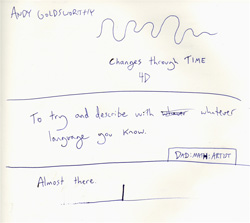 ANDY GOLDSWORTHY
Changes through TIME
4D
To try and describe with whatever
language you know.
DAD:MATH:ARTIST
Almost there.